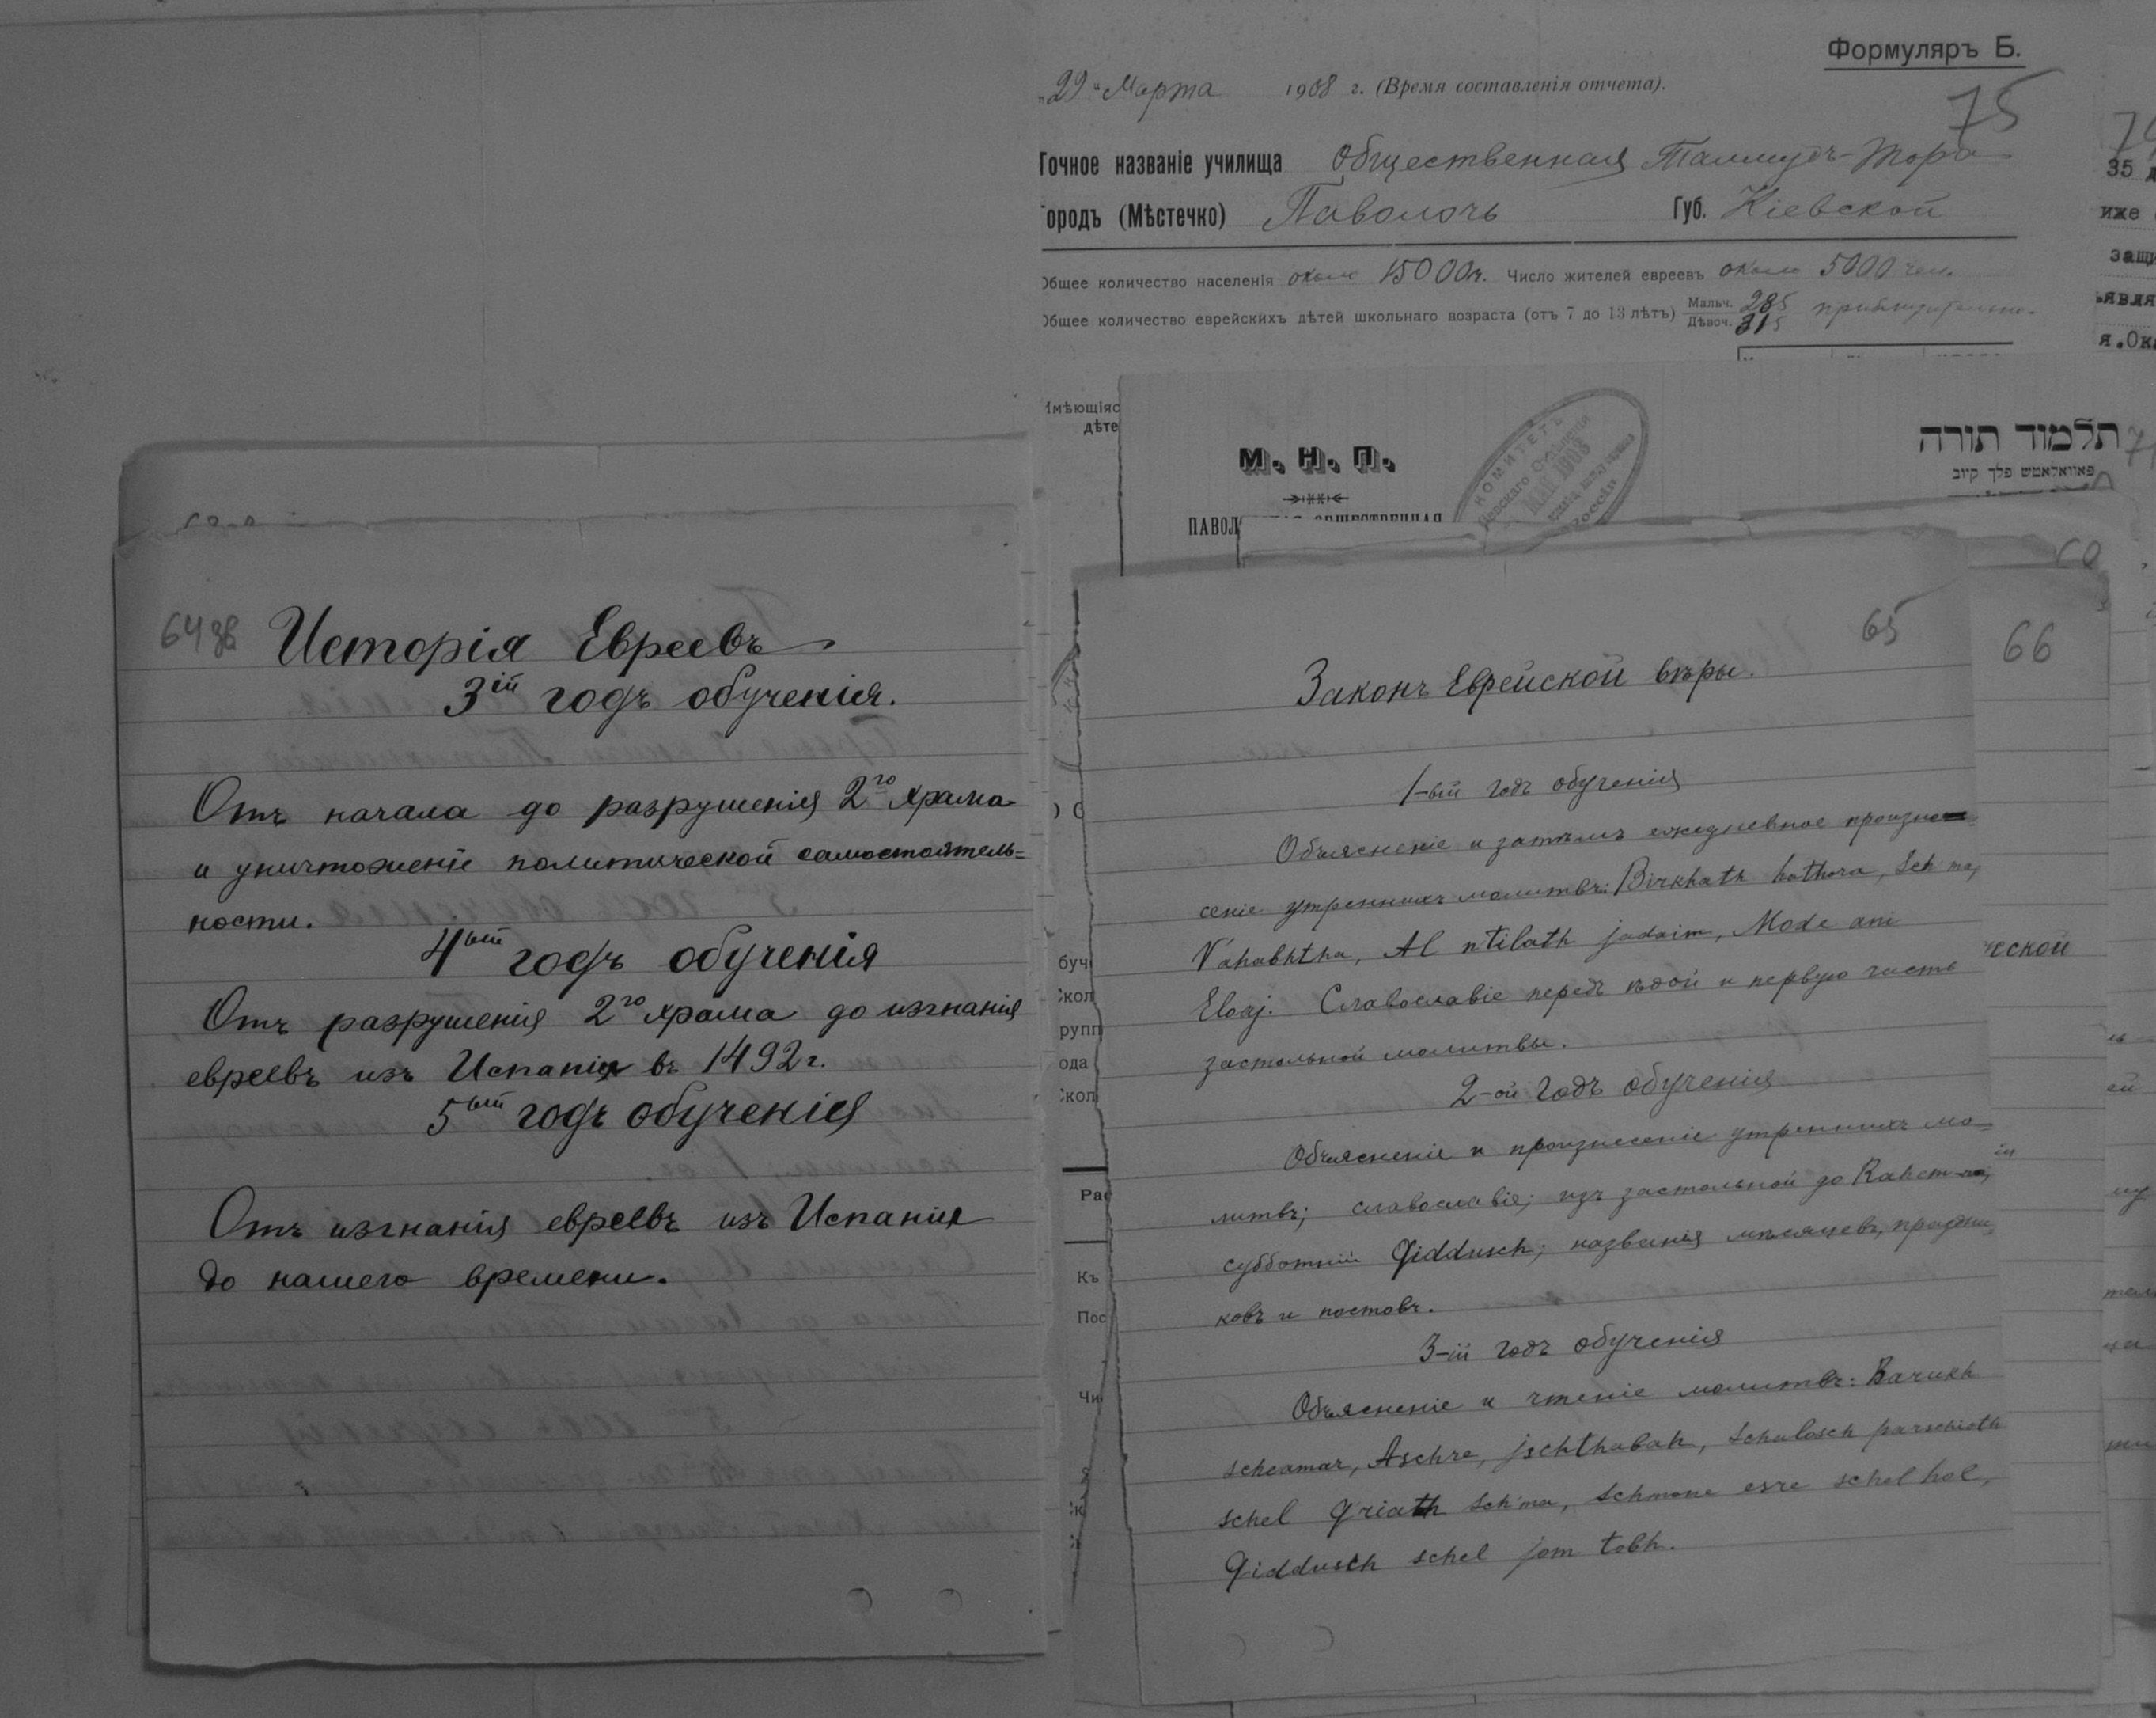 Формуляръ Б.
„29“ Марта 1908 г. (Время составленія отчета).
75
Точное названіе училища Общественная Талмудъ-Тора
ородъ (Мѣстечко) Паволочь Губ. Кіевской
Общее количество населенія около 15000 ч. Число жителей евреевъ около 5000 чел.
Общее количество еврейскихъ дѣтей школьнаго возраста (отъ 7 до 13 лѣтъ) Мальч. 285 Дѣвоч. 315 приблизительно.
35
иже
защи
я.Ок
Имѣющіяс
дѣте
М. Н. П.
ПАВОЛ
КОМИТЕТЪ
תלמוד תורה
פאוואלאטש פלך קיוב
64 об
Исторія Евреевъ
3ій годъ обученія.
Отъ начала до разрушенія 2го храма
и уничтоженіе политической самостоятель=
ности.
4ый годъ обученія
Отъ разрушенія 2го храма до изгнанія
евреевъ изъ Испаніи въ 1492 г.
5ый годъ обученія
Отъ изгнанія евреевъ изъ Испаніи
до нашего времени.
65
Законъ Еврейской вѣры.
1-ый годъ обученія
Объясненіе и затѣмъ ежедневное произне=
сеніе утреннихъ молитвъ: Birkhath hathora, Sch'ma,
V'ahabhtha, Al n'tilath jadaim, Mode ani
Eloaj. Славословіе передъ ѣдой и первую часть
застольной молитвы.
2-ой годъ обученія
Объясненіе и произнесеніе утреннихъ мо=
литвъ; славословія; изъ застольной до Rahem-na;
субботній Qiddusch; названія мѣсяцевъ, праздни
ковъ и постовъ.
3-ій годъ обученія
Объясненіе и чтеніе молитвъ: Barukh
scheamar, Aschre, jschthabah, Schalosch parschioth
schel Q'riath Sch'ma, Schmone esre schel hol,
Qiddusch schel jom tobh.
66
ческой